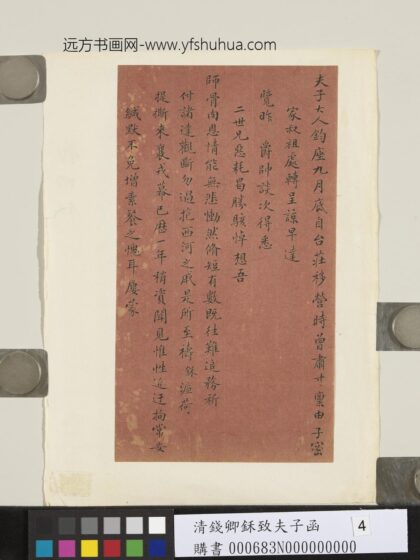 远方书画网-www.yfshuhua.com
夫子大人鈞座九月底自台莊移營時曾肅寸稟由子密
家叔祖處轉呈諒早達
覽昨 爵帥談次得悉
二世兄惡耗曷勝駭悼想吾
師骨肉恩情能無慟然脩短有數既往難追務祈
付諸達觀勿過抱西河之戚是所至禱銖渥荷
提撕來襄戎幕已歷一年稍資聞見惟性近迂拘常安
緘默不免增素餐之愧耳屢蒙
清錢卿鉌致夫子函
4
購書 000683N000000000